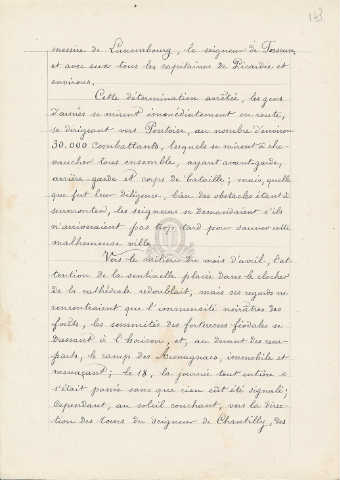 143
messire de Luxembourg, le seigneur de Fosseux,
et avec eux tous les capitaines de Picardie et
environs.
Cette détermination arrêtée, les gens
d'armes se mirent immédiatement en route,
se dirigeant vers Pontoise, au nombre d'environ
30.000 combattants, lesquels se mirent à che-
vaucher tous ensemble, ayant avant-garde,
arrière-garde et corps de bataille; mais, quelle
que fut leur diligence, bien des obstacles étant à
surmonter, les seigneurs se demandaient s'ils
n'arriveraient pas trop tard pour sauver cette
malheureuse ville.
Vers le milieu du mois d'avril, l'at-
tention de la sentinelle placée dans le clocher
de la cathédrale redoublait, mais ses regards ne
rencontraient que l'immensité noirâtre des
forêts, les sommités des forteresses féodales se
dressant à l'horizon; et, au devant des rem-
parts, le camp des Armagnacs, immobile et
menaçant; le 18, la journée tout entière
s'était passée sans que rien eût été signalé;
Cependant, au soleil couchant, vers la direc-
tion des tours du seigneur de Chantilly, des